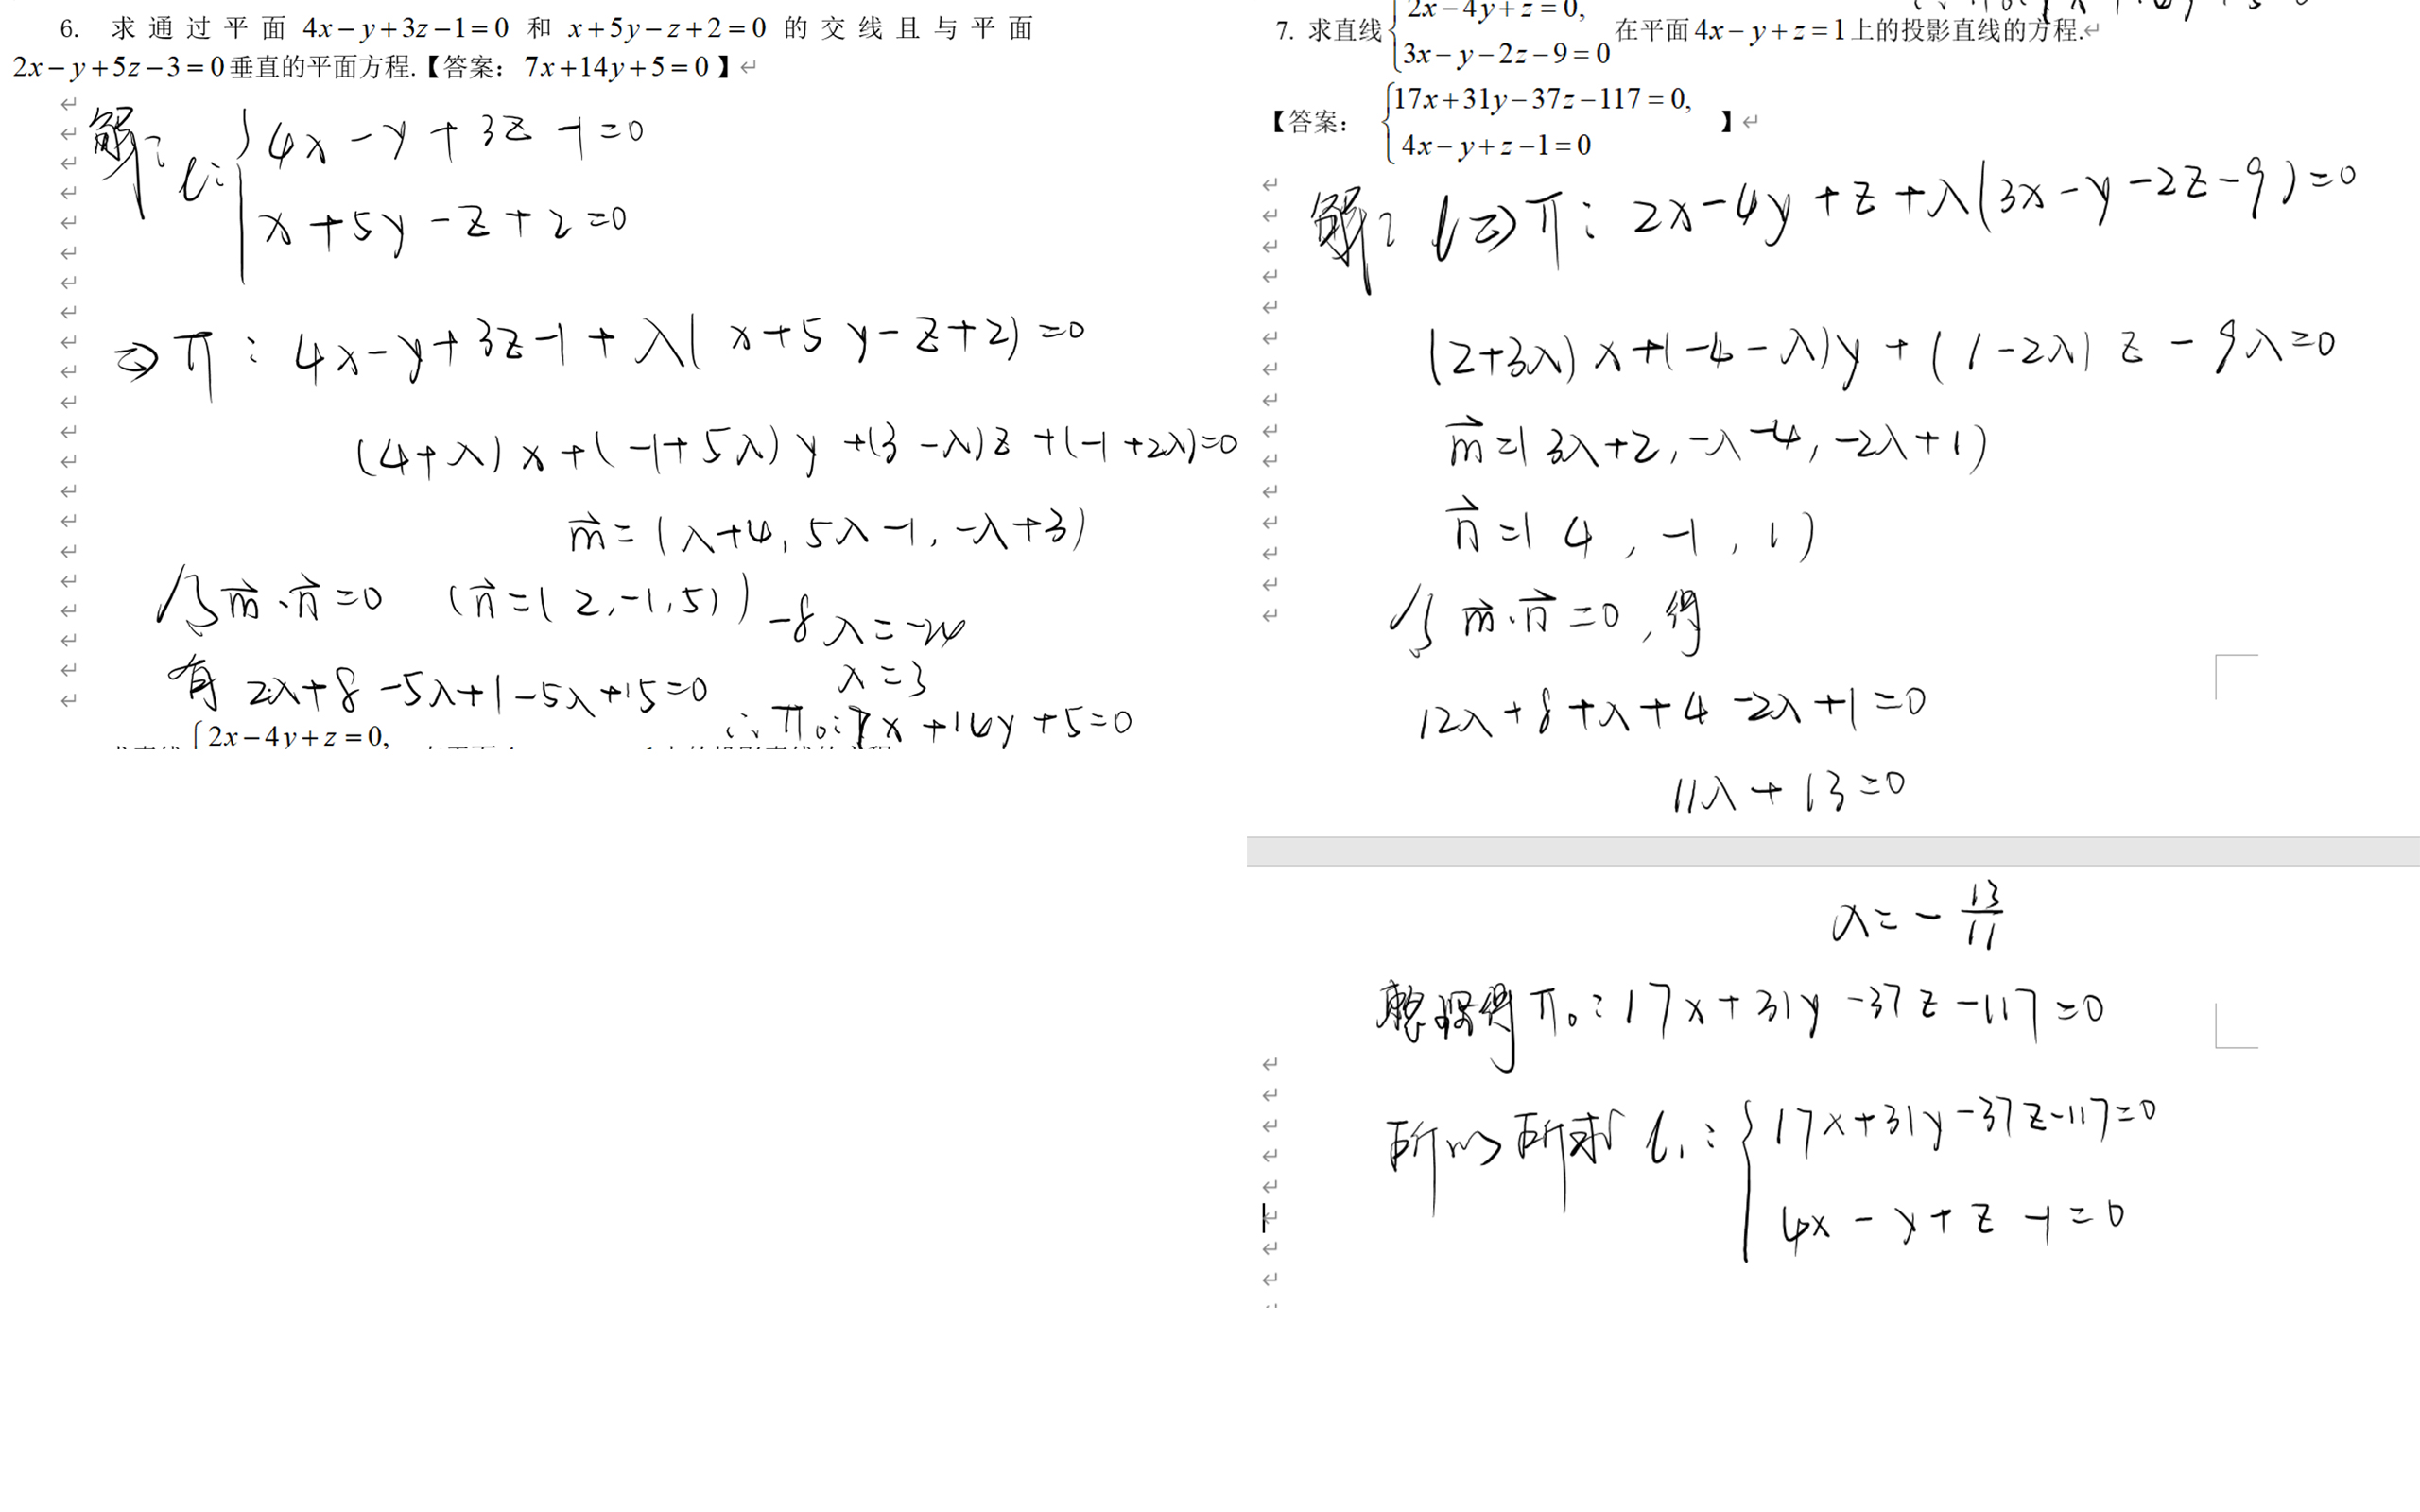 6. 求通过平面 4x−y+3z−1=0 和 x+5y−z+2=0 的交线且与平面
2x−y+5z−3=0垂直的平面方程.【答案：7x+14y+5=0】
解： l: {4x−y+3z−1=0
x+5y−z+2=0
⇒π：4x−y+3z−1+λ(x+5y−z+2)=0
(4+λ)x+(−1+5λ)y+(3−λ)z+(−1+2λ)=0
m⃗=(λ+4,5λ−1,−λ+3)
由m⃗·n⃗=0 (n⃗=(2,−1,5))
有 2λ+8−5λ+1−5λ+15=0
−8λ=−24
λ=3
∴π₀:7x+14y+5=0
{2x−4y+z=0,
7. 求直线{2x−4y+z=0,
3x−y−2z−9=0
在平面4x−y+z=1上的投影直线的方程.
【答案： {17x+31y−37z−117=0,
4x−y+z−1=0 】
解： l⇒π：2x−4y+z+λ(3x−y−2z−9)=0
(2+3λ)x+(−4−λ)y+(1−2λ)z−9λ=0
m⃗=(3λ+2,−λ−4,−2λ+1)
n⃗=(4,−1,1)
由m⃗·n⃗=0,得
12λ+8+λ+4−2λ+1=0
11λ+13=0
λ=−13/11
整理得π₀：17x+31y−37z−117=0
所以所求 l₁：{17x+31y−37z−117=0
4x−y+z−1=0